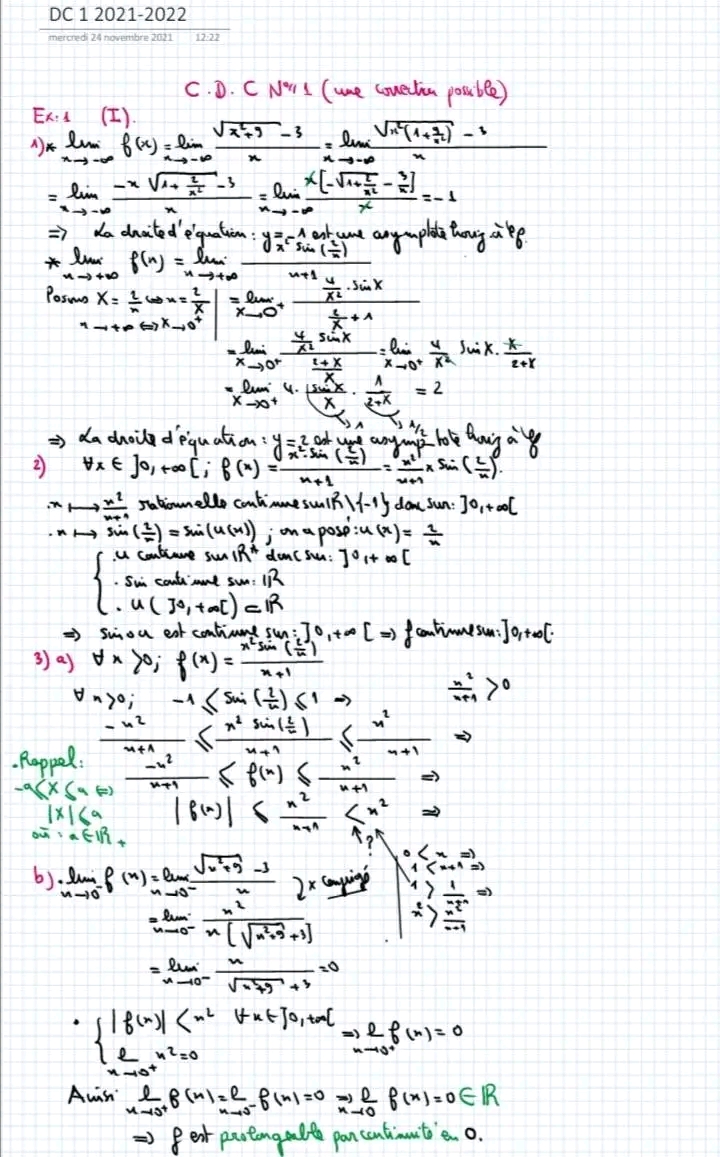 DC 1 2021-2022
mercredi 24 novembre 2021 12:22
C.D.C N°1 (une correction possible)
Ex:1 (I).
1)* lim_{x→-∞} f(x) = lim_{x→-∞} (√(x²+9) - 3)/x = lim_{x→-∞} (√(x²(1+9/x²)) - 3)/x
= lim_{x→-∞} (-x√(1+9/x²) - 3)/x = lim_{x→-∞} x[-√(1+9/x²) - 3/x]/x = -1
⇒ La droite d'équation : y=-1 est une asymptote horiz à ℓf.
* lim_{x→+∞} f(x) = lim_{x→+∞} x² sin(2/x)/(x+1)
Posons X = 2/x ⇔ x = 2/X | = lim_{X→0⁺} (4/X² . sin X)/(2/X + 1)
x→+∞ ⇔ X→0⁺
= lim_{X→0⁺} (4/X² sin X)/((2+X)/X) = lim_{X→0⁺} 4/X² sin X . X/(2+X)
= lim_{X→0⁺} 4 . sin X/X . 1/(2+X) = 2
→1 →1/2
⇒ La droite d'équation : y=2 est une asymptote horiz à ℓf
2) ∀x ∈ ]0,+∞[ ; f(x) = x² sin(2/x)/(x+1) = x²/(x+1) × sin(2/x).
. x ↦ x²/(x+1) rationnelle continue sur ℝ\{-1} donc sur : ]0,+∞[
. x ↦ sin(2/x) = sin(u(x)) ; on a posé : u(x) = 2/x
{ . u continue sur ℝ* donc sur : ]0,+∞[
. sin continue sur : ℝ
. u(]0,+∞[) ⊂ ℝ
⇒ sin∘u est continue sur : ]0,+∞[ ⇒ f continue sur : ]0,+∞[.
3) a) ∀x>0; f(x) = x² sin(2/x)/(x+1)
∀x>0; -1 ≤ sin(2/x) ≤ 1 ⇒ x²/(x+1) > 0
-x²/(x+1) ≤ x² sin(2/x)/(x+1) ≤ x²/(x+1) ⇒
. Rappel:
-x²/(x+1) ≤ f(x) ≤ x²/(x+1) ⇒
-a≤X≤a ⇔
|X|≤a
où : a∈ℝ₊
|f(x)| ≤ x²/(x+1) < x² ⇒
?
0 < x ⇒
1 < x+1 ⇒
1 > 1/(x+1) ⇒
x² > x²/(x+1)
b). lim_{x→0⁻} f(x) = lim_{x→0⁻} (√(x²+9) - 3)/x ) × conjugé
= lim_{x→0⁻} x²/(x[√(x²+9)+3])
= lim_{x→0⁻} x/(√(x²+9)+3) = 0
. { |f(x)| < x² ∀x∈]0,+∞[ ⇒ ℓ_{x→0⁺} f(x) = 0
ℓ_{x→0⁺} x² = 0
Ainsi ℓ_{x→0⁺} f(x) = ℓ_{x→0⁻} f(x) = 0 ⇒ ℓ_{x→0} f(x) = 0 ∈ ℝ
⇒ f est prolongeable par continuité en 0.